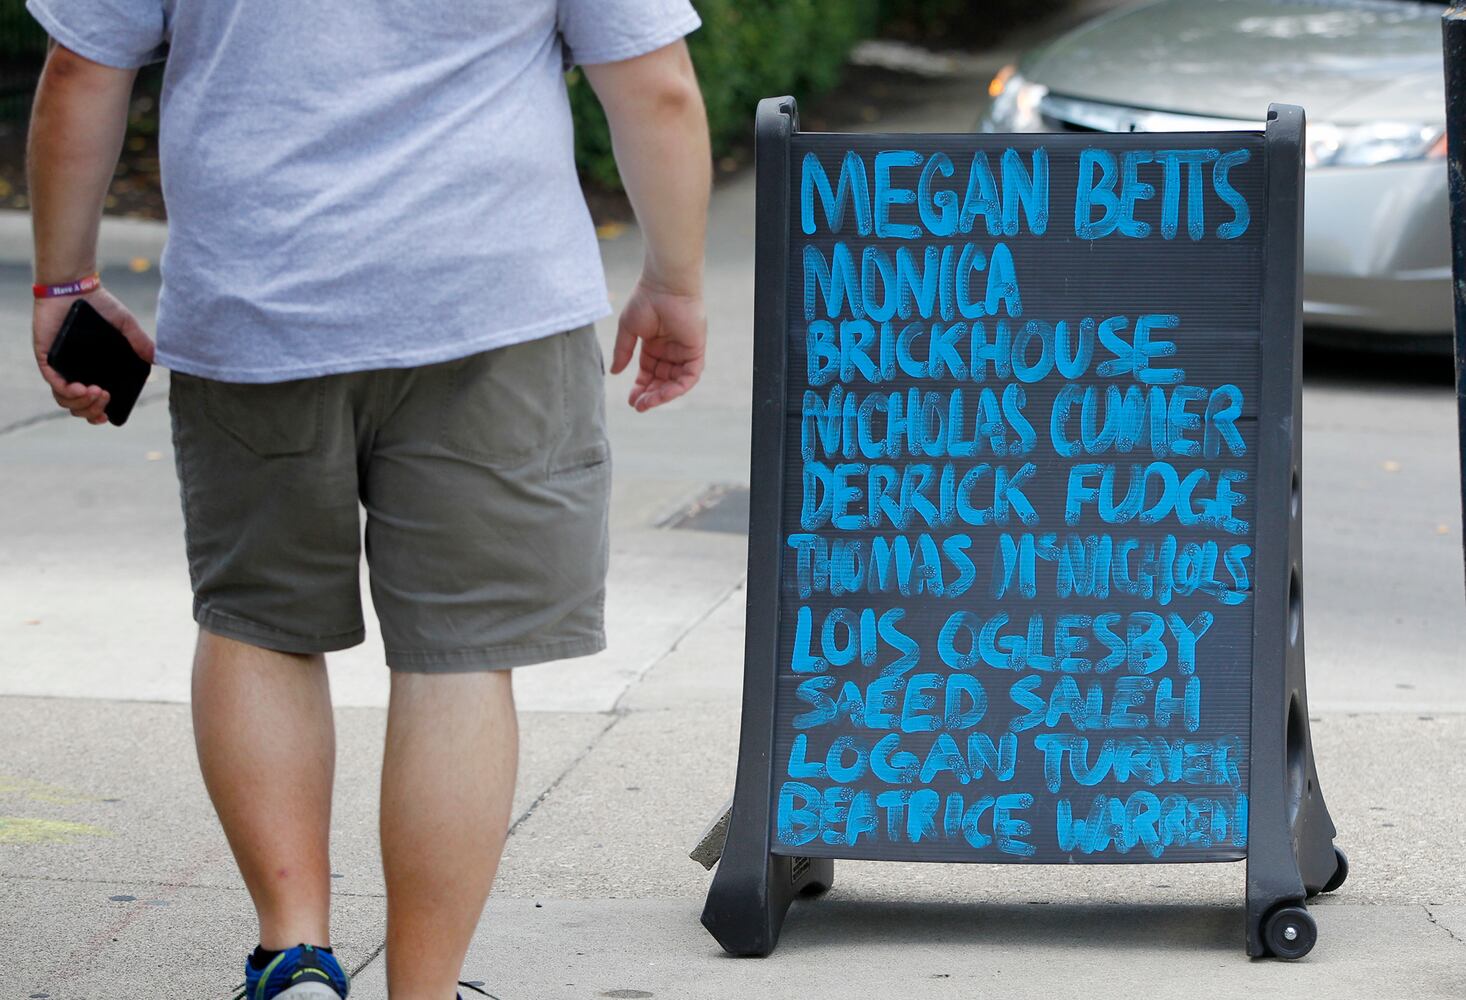 MEGAN BETTS
MONICA
BRICKHOUSE
NICHOLAS CUMER
DERRICK FUDGE
THOMAS McNICHOLS
LOIS OGLESBY
SAEED SALEH
LOGAN TURNER
BEATRICE WARREN
Have A Gay